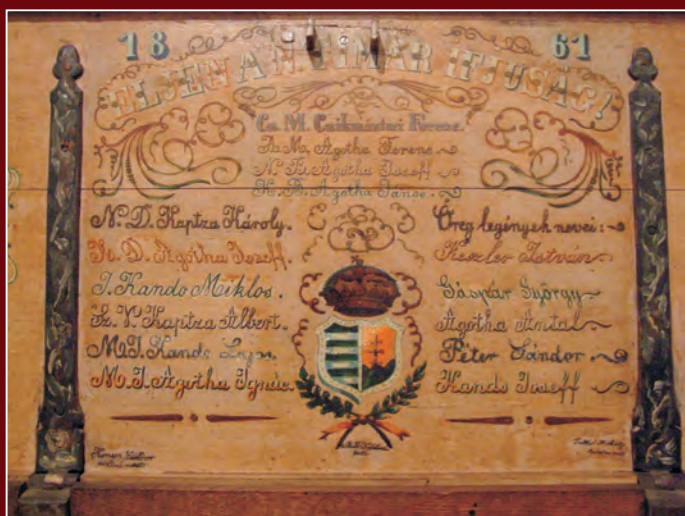 18 61
ÉLJEN A N. TIMÁR IFJUSÁG!
Cs. M. Csikmántori Ferenc.
B. M. Ágotha Ferenc
N. B. Ágotha Joseff
K. B. Ágotha János.
N. D. Kaptza Károly.
K. D. Ágotha Joseff.
J. Kando Miklos.
Sz. V. Kaptza Albert.
M. J. Kando Lajos.
M. J. Ágotha Ignác.
Öreg legények nevei:
Keszler István
Gáspár György
Ágotha Antal
Péter Sándor
Kando Joseff